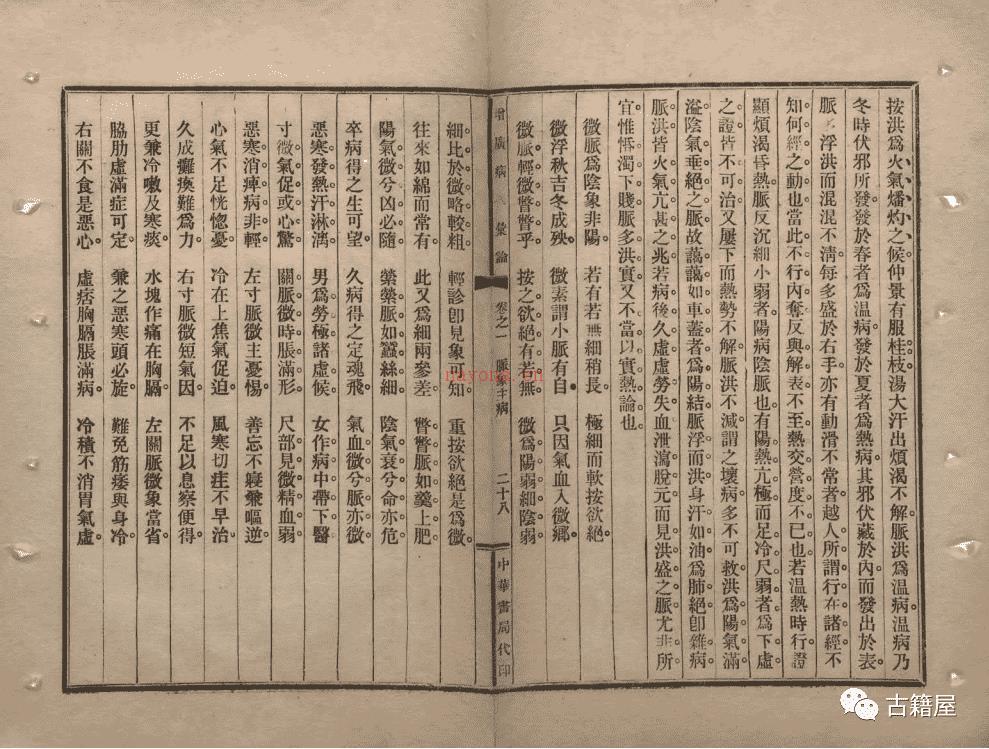 按洪爲火氣燔灼之候仲景有服桂枝湯大汗出煩渴不解脈洪爲温病温病乃
冬時伏邪所發發於春者爲温病發於夏者爲熱病其邪伏藏於內而發出於表
脈浮洪而混混不淸每多盛於右手亦有動滑不常者越人所謂行在諸經不
知何經之動也當此不行內奪反與解表不至熱交營度不已也若温熱時行證
顯煩渴昏熱脈反沉細小弱者陽病陰脈也有陽熱亢極而足冷尺弱者爲下虛
之證皆不可治又屢下而熱勢不解脈洪不減謂之壞病多不可救洪爲陽氣滿
溢陰氣垂絕之脈故藹藹如車蓋者爲陽結脈浮而洪身汗如油爲肺絕卽雜病
脈洪皆火氣亢甚之兆若病後久虛虛勞失血泄瀉脫元而見洪盛之脈尤非所
宜惟惟濁下賤脈多洪實又不當以實熱論也
微脈爲陰象非陽。 若有若無細稍長 極細而軟按欲絕
微浮秋吉冬成殃。 微素謂小脈有自 只因氣血入微鄉
微脈輕微瞥瞥乎 按之欲絕有若無 微爲陽弱細陰弱
增廣病 彙論 卷之一 脈 主病 二十八 中華書局代印
細比於微略較粗 輕診卽見象可知 重按欲絕是爲微
往來如綿而常有 此又爲細兩參差 瞥瞥脈如羹上肥
陽氣微兮凶必隨 縈縈脈如蠶絲細 陰氣衰兮命亦危
卒病得之生可望 久病得之定魂飛 氣血微兮脈亦微
惡寒發熱汗淋漓 男爲勞極諸虛候 女作病中帶下醫
寸微氣促或心驚 關脈微時脹滿形 尺部見微精血弱
惡寒消痺病非輕 左寸脈微主憂惕 善忘不寢兼嘔逆
心氣不足恍惚憂 冷在上焦氣促迫 風寒切疰不早治
久成癱瘓難爲力 右寸脈微短氣因 不足以息察便得
更兼冷嗽及寒痰 水塊作痛在胸膈 左關脈微象當省
脇肋虛滿症可定 兼之惡寒頭必旋 難免筋痿與身冷
右關不食是惡心 虛痞胸膈脹滿病 冷積不消胃氣虛
nayona.cn
古籍屋